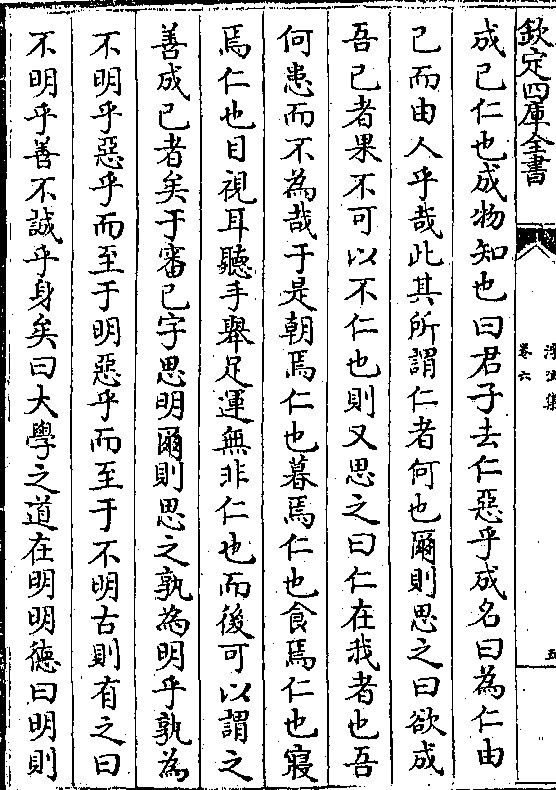 欽定四庫全書
浮沚集
卷六
五
成己仁也成物知也曰君子去仁惡乎成名曰為仁由
己而由人乎哉此其所謂仁者何也爾則思之曰欲成
吾己者果不可以不仁也則又思之曰仁在我者也吾
何患而不為哉于是朝焉仁也暮焉仁也食焉仁也寢
焉仁也目視耳聽手舉足運無非仁也而後可以謂之
善成己者矣于審己字思明爾則思之孰為明乎孰為
不明乎惡乎而至于明惡乎而至于不明古則有之曰
不明乎善不誠乎身矣曰大學之道在明明德曰明則